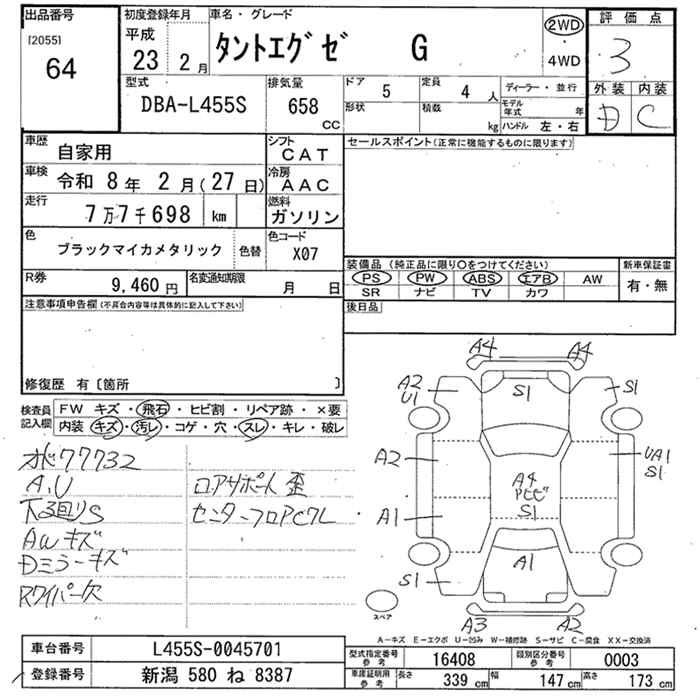 出品番号
[2055]
64
初度登録年月
平成
23 2月
車名・グレード
タントエグゼ G
2WD
4WD
評価点
3
外装 内装
D C
型式
DBA-L455S
排気量
658 CC
ドア
5
定員
4 人
形状
積載
kg
ディーラー・並行
モデル年式 年
ハンドル 左・右
車歴
自家用
シフト
CAT
車検
令和 8年 2月(27日)
冷房
AAC
走行
7万7千698 km
燃料
ガソリン
色
ブラックマイカメタリック
色替
色コード
X07
R券
9,460円
名変通知期限
月 日
セールスポイント(正常に機能するものに限ります)
装備品(純正品に限り○をつけてください)
新車保証書
PS PW ABS エアB AW
SR ナビ TV カワ
有・無
後日品
注意事項申告欄(不具合内容等は具体的に記入して下さい)
修復歴 有〔箇所 〕
検査員記入欄
FW キズ・飛石・ヒビ割・リペア跡・×要
内装 キズ・汚レ・コゲ・穴・スレ・キレ・破レ
77732
A.U
下回りS
AWキズ
Dミラーキズ
Rワイパー欠
ロアサポート歪
センターフロア
A4
A4
A2
U1
S1
S1
A2
UA1
S1
A4
S1
A1
S1
A1
A3
A2
スペア
A-キズ E-エクボ U-凹み W-補修跡 S-サビ C-腐食 XX-交換済
車台番号
L455S-0045701
登録番号
新潟 580 ね 8387
型式指定番号
参考
16408
類別区分番号
参考
0003
車庫証明用
参考
長さ
339 cm
幅
147 cm
高さ
173 cm